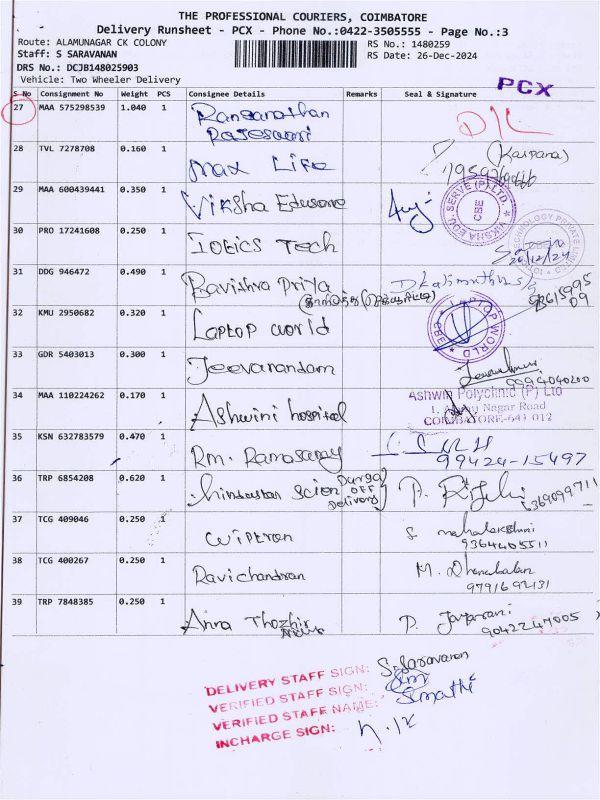 THE PROFESSIONAL COURIERS, COIMBATORE
Delivery Runsheet - PCX - Phone No.:0422-3505555 - Page No.:3
Route: ALAMUNAGAR CK COLONY
RS No.: 1480259
Staff: S SARAVANAN
RS Date: 26-Dec-2024
DRS No.: DCJB148025903
Vehicle: Two Wheeler Delivery
PCX
S No Consignment No Weight PCS Consignee Details Remarks Seal & Signature
27 MAA 575298539 1.040 1 Ranganathan
Rajeswari D/L
28 TVL 7278708 0.160 1 Max Life (Kalpana)
29 MAA 600439441 0.350 1 Viksha Edusone
VIKSHA EDU. SERVE (P) LTD CBE
30 PRO 17241608 0.250 1 IOEICS Tech
26/12/24
31 DDG 946472 0.490 1 Pavithra Priya
32 KMU 2950682 0.320 1 Laptop World
LAPTOP WORLD CBE
33 GDR 5403013 0.300 1 Jeevanandam
9994040200
34 MAA 110224262 0.170 1 Ashwini hospital
Ashwin Polyclinic (P) Ltd
Nagar Road
COIMBATORE-641 012
35 KSN 632783579 0.470 1 Rm. Ramasamy
99424-15497
36 TRP 6854208 0.620 1 hindustan Scien Durga OFF Delivery
37 TCG 409046 0.250 1 Wiptron S mahalakshmi
9364405511
38 TCG 400267 0.250 1 Ravichandran M. Dhanabalan
9791692131
39 TRP 7848385 0.250 1 Anna Thozhir P. Jayarani
9042247005
DELIVERY STAFF SIGN: S. Saravanan
VERIFIED STAFF SIGN:
VERIFIED STAFF NAME: Sumathi
INCHARGE SIGN: